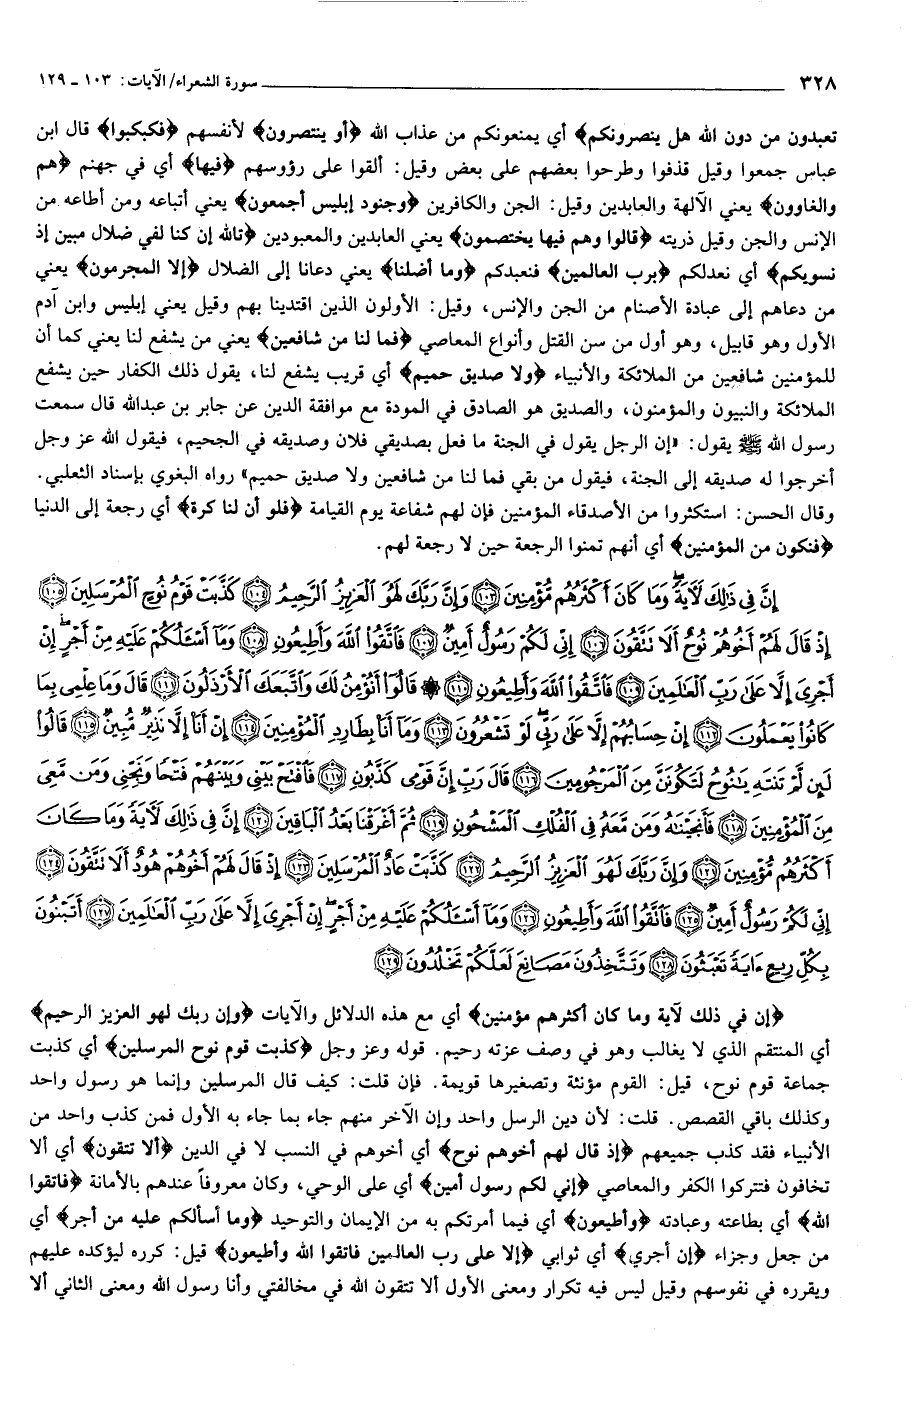 ٣٢٨ سورة الشعراء/ الآيات: ١٠٣ ـ ١٢٩
تعبدون من دون الله هل ينصرونكم﴾ أي يمنعونكم من عذاب الله ﴿أو ينتصرون﴾ لأنفسهم ﴿فكبكبوا﴾ قال ابن
عباس جمعوا وقيل قذفوا وطرحوا بعضهم على بعض وقيل: ألقوا على رؤوسهم ﴿فيها﴾ أي في جهنم ﴿هم
والغاوون﴾ يعني الآلهة والعابدين وقيل: الجن والكافرين ﴿وجنود إبليس أجمعون﴾ يعني أتباعه ومن أطاعه من
الإنس والجن وقيل ذريته ﴿قالوا وهم فيها يختصمون﴾ يعني العابدين والمعبودين ﴿تالله إن كنا لفي ضلال مبين إذ
نسويكم﴾ أي نعدلكم ﴿برب العالمين﴾ فنعبدكم ﴿وما أضلنا﴾ يعني دعانا إلى الضلال ﴿إلا المجرمون﴾ يعني
من دعاهم إلى عبادة الأصنام من الجن والإنس، وقيل: الأولون الذين اقتدينا بهم وقيل يعني إبليس وابن آدم
الأول وهو قابيل، وهو أول من سن القتل وأنواع المعاصي ﴿فما لنا من شافعين﴾ يعني من يشفع لنا يعني كما أن
للمؤمنين شافعين من الملائكة والأنبياء ﴿ولا صديق حميم﴾ أي قريب يشفع لنا، يقول ذلك الكفار حين يشفع
الملائكة والنبيون والمؤمنون، والصديق هو الصادق في المودة مع موافقة الدين عن جابر بن عبدالله قال سمعت
رسول الله ﷺ يقول: «إن الرجل يقول في الجنة ما فعل بصديقي فلان وصديقه في الجحيم، فيقول الله عز وجل
أخرجوا له صديقه إلى الجنة، فيقول من بقي فما لنا من شافعين ولا صديق حميم» رواه البغوي بإسناد الثعلبي.
وقال الحسن: استكثروا من الأصدقاء المؤمنين فإن لهم شفاعة يوم القيامة ﴿فلو أن لنا كرة﴾ أي رجعة إلى الدنيا
﴿فنكون من المؤمنين﴾ أي أنهم تمنوا الرجعة حين لا رجعة لهم.
إِنَّ فِي ذَٰلِكَ لَآيَةً ۖ وَمَا كَانَ أَكْثَرُهُم مُّؤْمِنِينَ ﴿١٠٣﴾ وَإِنَّ رَبَّكَ لَهُوَ الْعَزِيزُ الرَّحِيمُ ﴿١٠٤﴾ كَذَّبَتْ قَوْمُ نُوحٍ الْمُرْسَلِينَ ﴿١٠٥﴾
إِذْ قَالَ لَهُمْ أَخُوهُمْ نُوحٌ أَلَا تَتَّقُونَ ﴿١٠٦﴾ إِنِّي لَكُمْ رَسُولٌ أَمِينٌ ﴿١٠٧﴾ فَاتَّقُوا اللَّهَ وَأَطِيعُونِ ﴿١٠٨﴾ وَمَا أَسْـَٔلُكُمْ عَلَيْهِ مِنْ أَجْرٍ ۖ إِنْ
أَجْرِيَ إِلَّا عَلَىٰ رَبِّ الْعَالَمِينَ ﴿١٠٩﴾ فَاتَّقُوا اللَّهَ وَأَطِيعُونِ ﴿١١٠﴾ ۞ قَالُوا أَنُؤْمِنُ لَكَ وَاتَّبَعَكَ الْأَرْذَلُونَ ﴿١١١﴾ قَالَ وَمَا عِلْمِي بِمَا
كَانُوا يَعْمَلُونَ ﴿١١٢﴾ إِنْ حِسَابُهُمْ إِلَّا عَلَىٰ رَبِّي ۖ لَوْ تَشْعُرُونَ ﴿١١٣﴾ وَمَا أَنَا بِطَارِدِ الْمُؤْمِنِينَ ﴿١١٤﴾ إِنْ أَنَا إِلَّا نَذِيرٌ مُّبِينٌ ﴿١١٥﴾ قَالُوا
لَئِن لَّمْ تَنتَهِ يَا نُوحُ لَتَكُونَنَّ مِنَ الْمَرْجُومِينَ ﴿١١٦﴾ قَالَ رَبِّ إِنَّ قَوْمِي كَذَّبُونِ ﴿١١٧﴾ فَافْتَحْ بَيْنِي وَبَيْنَهُمْ فَتْحًا وَنَجِّنِي وَمَن مَّعِيَ
مِنَ الْمُؤْمِنِينَ ﴿١١٨﴾ فَأَنجَيْنَاهُ وَمَن مَّعَهُ فِي الْفُلْكِ الْمَشْحُونِ ﴿١١٩﴾ ثُمَّ أَغْرَقْنَا بَعْدُ الْبَاقِينَ ﴿١٢٠﴾ إِنَّ فِي ذَٰلِكَ لَآيَةً وَمَا كَانَ
أَكْثَرُهُم مُّؤْمِنِينَ ﴿١٢١﴾ وَإِنَّ رَبَّكَ لَهُوَ الْعَزِيزُ الرَّحِيمُ ﴿١٢٢﴾ كَذَّبَتْ عَادٌ الْمُرْسَلِينَ ﴿١٢٣﴾ إِذْ قَالَ لَهُمْ أَخُوهُمْ هُودٌ أَلَا تَتَّقُونَ ﴿١٢٤﴾
إِنِّي لَكُمْ رَسُولٌ أَمِينٌ ﴿١٢٥﴾ فَاتَّقُوا اللَّهَ وَأَطِيعُونِ ﴿١٢٦﴾ وَمَا أَسْـَٔلُكُمْ عَلَيْهِ مِنْ أَجْرٍ ۖ إِنْ أَجْرِيَ إِلَّا عَلَىٰ رَبِّ الْعَالَمِينَ ﴿١٢٧﴾ أَتَبْنُونَ
بِكُلِّ رِيعٍ ءَايَةً تَعْبَثُونَ ﴿١٢٨﴾ وَتَتَّخِذُونَ مَصَانِعَ لَعَلَّكُمْ تَخْلُدُونَ ﴿١٢٩﴾
﴿إن في ذلك لآية وما كان أكثرهم مؤمنين﴾ أي مع هذه الدلائل والآيات ﴿وإن ربك لهو العزيز الرحيم﴾
أي المنتقم الذي لا يغالب وهو في وصف عزته رحيم. قوله وعز وجل ﴿كذبت قوم نوح المرسلين﴾ أي كذبت
جماعة قوم نوح، قيل: القوم مؤنثة وتصغيرها قويمة. فإن قلت: كيف قال المرسلين وإنما هو رسول واحد
وكذلك باقي القصص. قلت: لأن دين الرسل واحد وإن الآخر منهم جاء بما جاء به الأول فمن كذب واحد من
الأنبياء فقد كذب جميعهم ﴿إذ قال لهم أخوهم نوح﴾ أي أخوهم في النسب لا في الدين ﴿ألا تتقون﴾ أي ألا
تخافون فتتركوا الكفر والمعاصي ﴿إني لكم رسول أمين﴾ أي على الوحي، وكان معروفاً عندهم بالأمانة ﴿فاتقوا
الله﴾ أي بطاعته وعبادته ﴿وأطيعون﴾ أي فيما أمرتكم به من الإيمان والتوحيد ﴿وما أسألكم عليه من أجر﴾ أي
من جعل وجزاء ﴿إن أجري﴾ أي ثوابي ﴿إلا على رب العالمين فاتقوا الله وأطيعون﴾ قيل: كرره ليؤكده عليهم
ويقرره في نفوسهم وقيل ليس فيه تكرار ومعنى الأول ألا تتقون الله في مخالفتي وأنا رسول الله ومعنى الثاني ألا